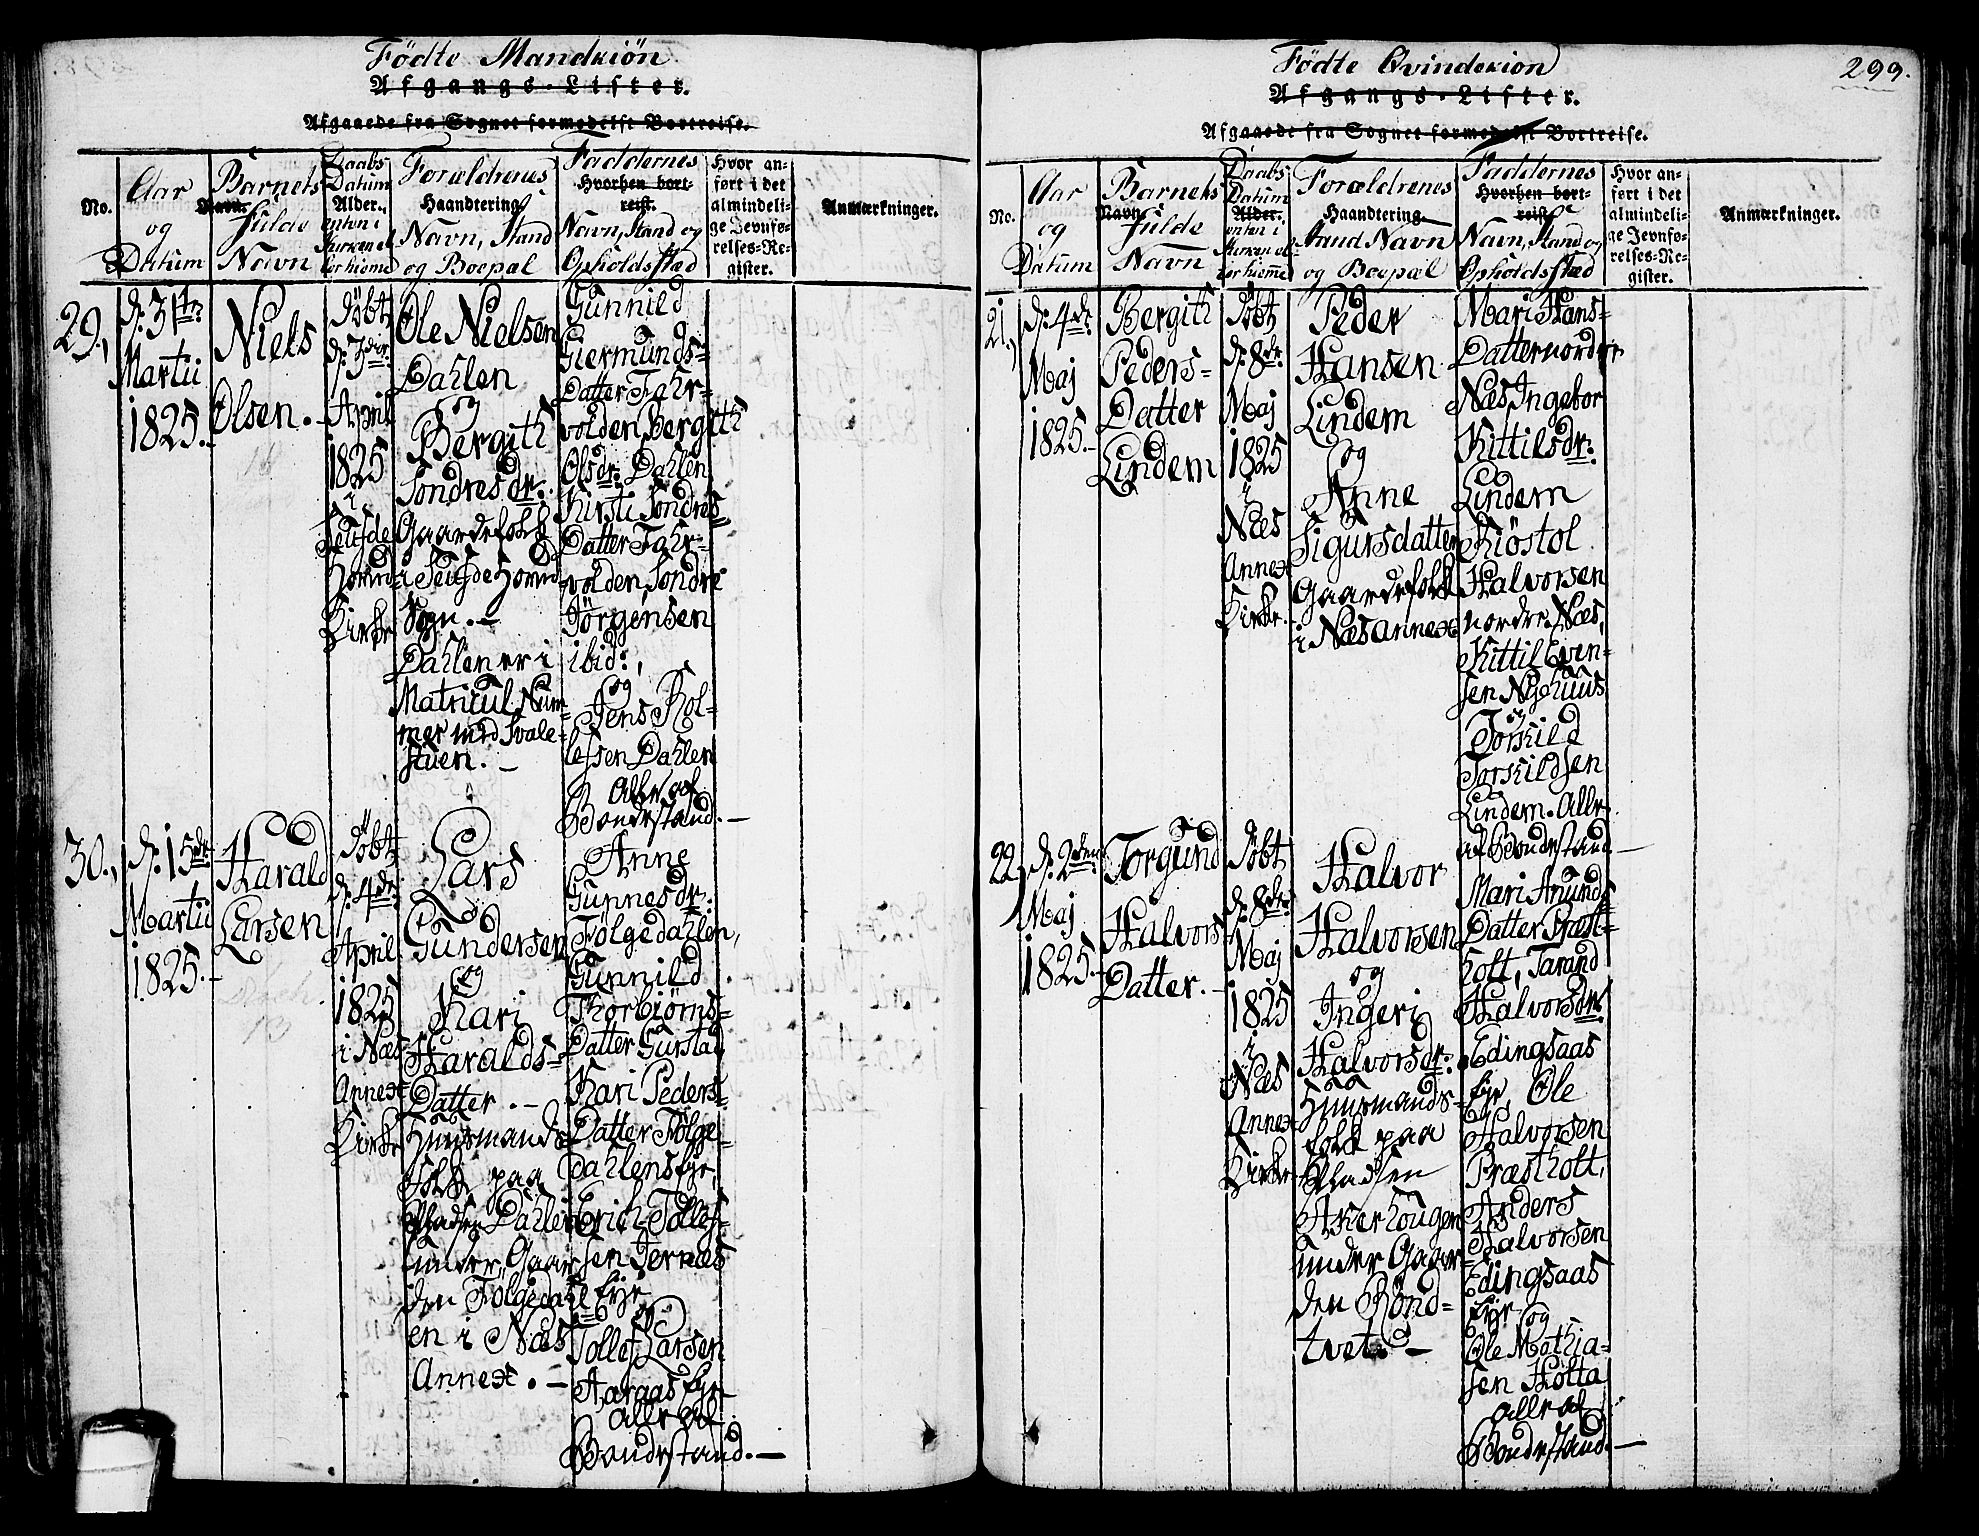 Födte Mandkiön
Afgangs-Lister.
Afgaaede fra Sognet formedelst Bortreise.
No.
Aar
og
Datum
Barnets
Navn.
fulde
Navn
Daabs
Datum
Alder.
enten i
Kirken el-
ler hieme
Forældrenes
Haandtering
Navn, Stand
og Boepæl
Faddernes
Hvorhen bort-
reist.
Navn, Stand og
Opholdsstæd
Hvor an-
ført i det
almindeli-
ge Jevnfø-
relses-Re-
gister.
Anmærkninger.
29.,
d: 31te
Martii
1825.-
Niels
Olsen.-
döbt
d: 3die
April
1825
i
Kirke
Ole Nielsen
Dahlen
og
Bergith
Sondresdr:
Gaardefolk
i
Sogn.-
Dahlen er i
Matricul Num-
mer med Svale-
stuen.-
Gunnild
Giermunds-
Datter Fahr-
volden, Bergith
Olsdr: Dahlen
Kirsti Sondres
Datter Fahr-
volden Sondre
Jörgensen
ibid:,
og
Jens Rol-
lefsen Dahlen
Alle af
Bondestand.-
30.,
d: 15de
Martii
1825.-
Harald
Larsen
Döbt
d: 4de
April
1825
i Næs
Annex
Kirke
Lars
Gundersen
og
Kari
Haralds-
Datter.-
Huusmands
Folk paa
Pladsen Dahlen
under Gaar-
den Fölgedahl-
en i Næs
Annex.-
Anne
Gunnesdr:
Fölgedahlen,
Gunnild
Thorbiörns-
Datter Gurstad
Kari Peders-
Datter Fölge-
Dahlens Eye,
Erich Tollef-
sen Jernæs
Eye
og
Tollef Larsen
Haraas Eye
Alle af
Bondestand.-
Födte Qvindekiön
299.
Afgangs-Lister.
Afgaaede fra Sognet formedelst Bortreise.
No.
Aar
og
Datum
Barnets
Navn
fulde
Navn
Daabs
Datum
Alder.
enten i
Kirken el-
ler hieme
Forældrenes
Haandtering
Stand Navn
og Boepæl
Faddernes
Hvorhen bort-
reist
Navn, Stand og
Opholdsstæd
Hvor an-
ført i det
almindeli-
ge Jevnfø-
relses-Re-
gister.
Anmærkninger.
21,
d: 4de
Maj
1825.-
Bergith
Peders-
Datter
Lindem
Döbt
d: 8de
Maj
1825
i
Næs
Annex
Kirke.
Peder
Hansen
Lindem
og
Anne
Sigursdatter
Gaardefolk
i Næs Annex
Mari Hans-
Datter nordre
Næs Ingebor
Kittilsdr:
Lindem
Kiöstol
Halvorsen
nordre Næs,
Kittil Even-
sen Nyehuus
og
Torkild
Torkildsen
Lindem. Alle
af Bondestand-
22,
d: 2den
Maj
1825.-
Torgund
Halvors
Datter.-
Döbt
d: 8de
Maj
1825
i
Næs
Annex
Kirke
Halvor
Halvorsen
og
Ingeri
Halvorsdr:
Huusmands-
folk paa
Pladsen
Askerhougen
under Gaar-
den Rönd-
tvet.-
Mari Anunds
Datter Præst-
holt, Tarand
Halvorsdr:
Edingsaas
Eye, Ole
Halvorsen
Præstholt,
Anders
Halvorsen
Edingsaas
Eye og
Ole Mathia-
sen Holta
Alle af
Bondestand.-